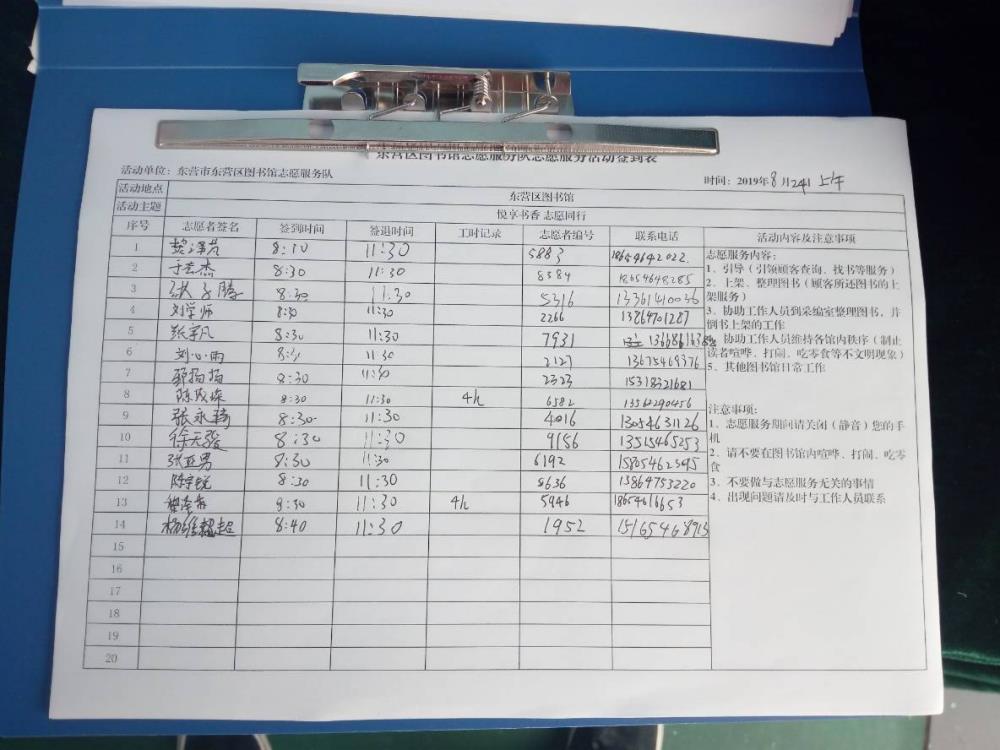 东营区图书馆志愿服务队志愿服务活动签到表
活动单位：东营市东营区图书馆志愿服务队 时间：2019年8月24日 上午
活动地点 东营区图书馆
活动主题 悦享书香 志愿同行
序号 志愿者签名 签到时间 签退时间 工时记录 志愿者编号 联系电话 活动内容及注意事项
1 8:10 11:30 5883 18659642022
2 于芸杰 8:30 11:30 8584 18654648285
3 张子腾 8:30 11:30 5316 13361410036
4 刘学师 8:30 11:30 2266 13864701287
5 张宇凡 8:30 11:30 7931
6 刘心雨 8:30 11:30 2127 13675469376
7 郭扬扬 8:30 11:30 2323 15318321681
8 8:30 11:30 4h 6582 13562290456
9 张永骑 8:30 11:30 4016 13054631126
10 徐天骏 8:30 11:30 9156 13515465253
11 张亚男 8:30 11:30 6192 15805462595
12 陈宇锐 8:30 11:30 8636 13864753220
13 11:30 4h 5946 18654616653
14 8:40 11:30 1952 15165468913
15
16
17
18
19
20
志愿服务内容：
1、引导（引领顾客查询、找书等服务）
2、上架、整理图书（顾客所还图书的上
架服务）
3、协助工作人员到采编室整理图书，并
倒书上架的工作
、协助工作人员维持各馆内秩序（制止
读者喧哗、打闹、吃零食等不文明现象）
5、其他图书馆日常工作
注意事项：
1、志愿服务期间请关闭（静音）您的手
机
2、请不要在图书馆内喧哗、打闹、吃零
食
3、不要做与志愿服务无关的事情
4、出现问题请及时与工作人员联系